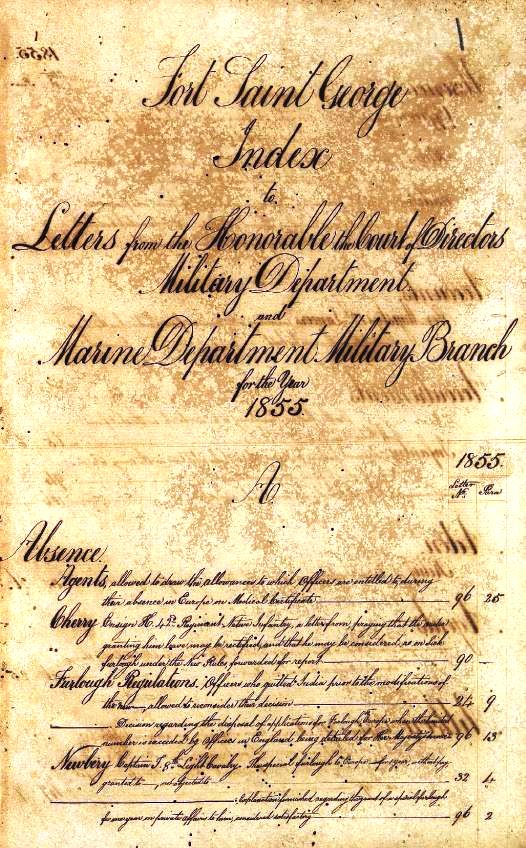 1855.
1
Fort Saint George
Index
to
Letters from the Honorable the Court of Directors
Military Department
and
Marine Department Military Branch
for the Year
1855.
1855.
A
Letter No. Para
Absence
Agents, allowed to draw the allowances to which Officers are entitled to during
their absence in Europe on Medical Certificate 96 25
Cherry Ensign H. 4th Regiment Native Infantry, a letter from praying that the order
granting him leave may be rectified, and that he may be considered as on sick
furlough under the New Rules forwarded for report 90 -
Furlough Regulations, Officers who quitted India prior to the modifications of
the new, allowed to reconsider their decision 24 9
Decision regarding the disposal of applications for Furlough to Europe when the
number is exceeded by Officers in England being detailed for Her Majesty's 96 13
Newbery Captain T. 8th Light Cavalry. The special furlough to Europe for year
granted to, not objected to 32 4
Explanation furnished regarding the grant of a special furlough
for one year on private affairs to him, considered satisfactory 96 2